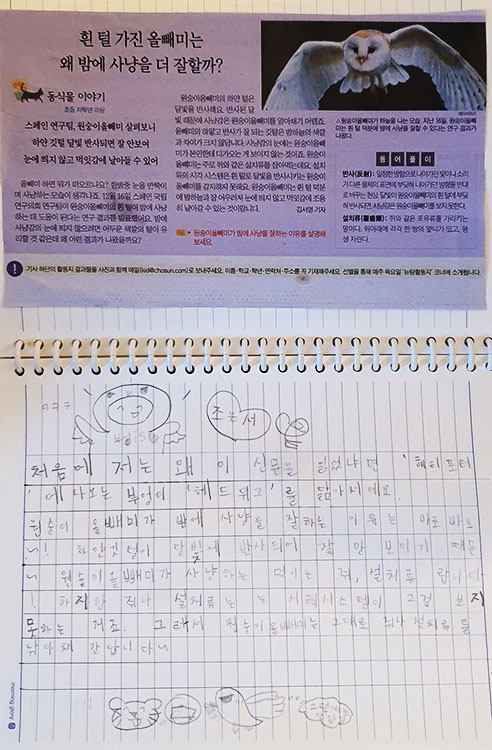 흰 털 가진 올빼미는
왜 밤에 사냥을 더 잘할까?
동식물 이야기
초등 저학년 이상
스페인 연구팀, 원숭이올빼미 살펴보니
하얀 깃털 달빛 반사되면 잘 안보여
눈에 띄지 않고 먹잇감에 날아들 수 있어
올빼미 하면 뭐가 떠오르나요? 한밤중 눈을 반짝이
며 사냥하는 모습이 생각나죠.
원숭이올빼미의 하얀 털은
달빛을 반사해요. 반사된 달
빛 때문에 사냥감은 원숭이올빼미를 알아채기 어렵죠.
올빼미의 하얗고 반사가 잘 되는 깃털은 밤하늘의 색깔
과 차이가 크지 않답니다. 사냥감의 눈에는 원숭이올빼
미가 본인한테 다가오는 게 보이지 않는 것이죠. 원숭이
올빼미는 주로 쥐와 같은 설치류를 잡아먹는데요. 설치
류의 시각 시스템은 흰 털로 달빛을 반사시키는 원숭이
올빼미를 감지하지 못해요. 원숭이올빼미는 흰 털 덕분
에 밤하늘과 잘 어우러져 눈에 띄지 않고 먹잇감에 조용
히 날아갈 수 있는 것이랍니다.
김시영 기자
원숭이올빼미가 밤에 사냥을 잘하는 이유를 설명해
보세요.
△원숭이올빼미가 하늘을 나는 모습. 지난 16일, 원숭이올빼
미는 흰 털 덕분에 밤에 사냥을 잘할 수 있다는 연구 결과가
나왔죠.
용어풀이
반사(反射): 일정한 방향으로 나아가던 빛이나 소리
가 다른 물체의 표면에 부딪혀 나아가던 방향을 반대
로 바꾸는 현상.
설치류(齧齒類): 쥐와 같은 포유류를 가리키는
말이다. 위아래에 각각 한 쌍의 앞니가 있고, 평
생 자란다.
! 기사 하단의 활동지 결과물을 사진과 함께 메일(kid@chosun.com)로 보내주세요. 이름·학교·학년·연락처·주소를 꼭 기재해주세요. 선별을 통해 매주 목요일 '뉴팜활동지' 코너에 소개됩니다.
ㅋㅋㅋ
조은서
처음에 저는 왜 이 신문을 읽었냐면 '해리포터
'에 나오는 부엉이 '헤드위그'를 닮아서예요.
원숭이 올빼미가 밤에 사냥을 잘하는 이유는 바로바로
하얀 털이 달빛에 반사되어 잘 안 보이기 때문
원숭이올빼미가 사냥하는 먹이는 쥐, 설치류 랍니다
! 하지만 쥐나 설치류는 시력시스템이 그걸 보지
못하는 거죠. 그래서 원숭이올빼미는 그대로 쥐나 설치류를
낚아채 간답니다
morning glory